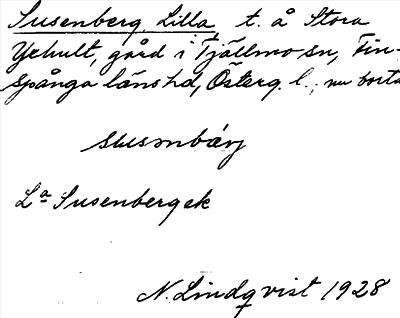 Susenberg, Lilla t. å Stora
Yxhult, gård i Tjällmo sn, Fin-
spånga länshd, Österg. l.; nu borta
susmbärj
La Susenberg ek
N. Lindqvist 1928